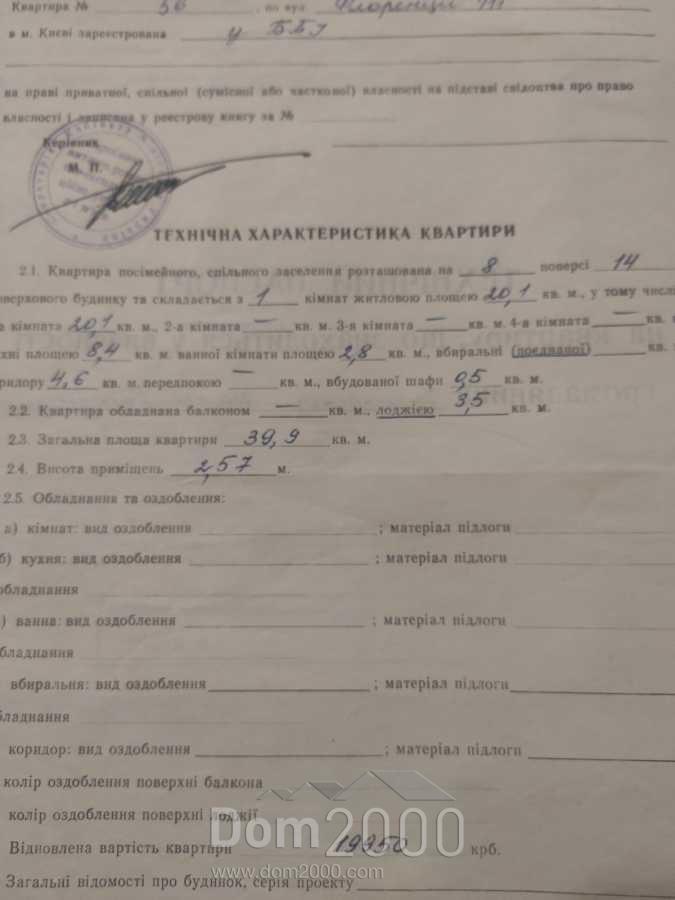 Квартира № 56, по вул. Флоренції
в м. Києві зареєстрована у ББІ
на праві приватної, спільної (сумісної або часткової) власності на підставі свідоцтва про право
власності і записана у реєстрову книгу за №
Керівник
М. П.
ТЕХНІЧНА ХАРАКТЕРИСТИКА КВАРТИРИ
2.1. Квартира посімейного, спільного заселення розташована на 8 поверсі 14
оверхового будинку та складається з 1 кімнат житловою площею 20,1 кв. м., у тому числі
а кімната 20,1 кв. м., 2-а кімната — кв. м. 3-я кімната — кв. м. 4-а кімната — кв.
хні площею 8,4 кв. м. ванної кімнати площею 2,8 кв. м., вбиральні (поєднаної) кв.
ридору 4,6 кв. м. передпокою — кв. м., вбудованої шафи 0,5 кв. м.
2.2. Квартира обладнана балконом — кв. м., лоджією 3,5 кв. м.
2.3. Загальна площа квартири 39,9 кв. м.
2.4. Висота приміщень 2,57 м.
2.5. Обладнання та оздоблення:
а) кімнат: вид оздоблення ; матеріал підлоги
б) кухня: вид оздоблення ; матеріал підлоги
обладнання
) ванна: вид оздоблення ; матеріал підлоги
бладнання
вбиральня: вид оздоблення ; матеріал підлоги
бладнання
коридор: вид оздоблення ; матеріал підлоги
колір оздоблення поверхні балкона
колір оздоблення поверхні лоджії
Dom2000
Відновлена вартість квартири 19950 крб.
www.dom2000.com
Загальні відомості про будинок, серія проекту